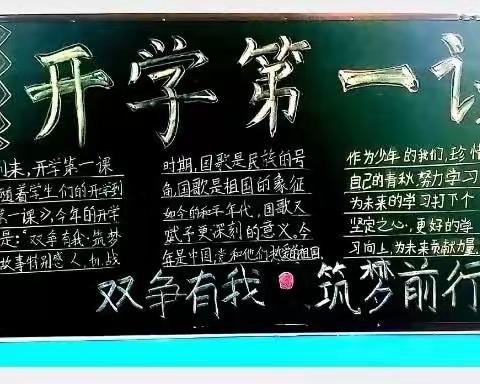 开学第一课
到来,开学第一课
随着学生们的开学到
第一课》,今年的开学
是:“双争有我·筑梦
故事特别感人,抗战
时期,国歌是民族的号
角国歌是祖国的象征
如今的和平年代,国歌又
赋予更深刻的意义,今
年是中国党和他们热爱的祖国
作为少年的我们,珍惜
自己的青秋,努力学习
为未来的学习打下个
坚定之心,更好的学
习向上,为未来贡献力量,
双争有我 筑梦前行